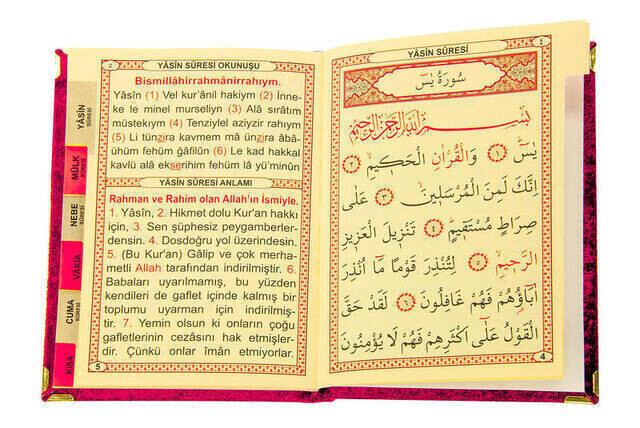 YÂSİN SÛRESİ
٤
سُورَةُ يٰسٓ
بِسْمِ اللّٰهِ الرَّحْمٰنِ الرَّحِيمِ
يٰسٓ ﴿١﴾ وَالْقُرْاٰنِ الْحَكِيمِ ﴿٢﴾
اِنَّكَ لَمِنَ الْمُرْسَلِينَ ﴿٣﴾ عَلٰى
صِرَاطٍ مُسْتَقِيمٍ ﴿٤﴾ تَنْزِيلَ الْعَزِيزِ
الرَّحِيمِ ﴿٥﴾ لِتُنْذِرَ قَوْمًا مَٓا اُنْذِرَ
اٰبَٓاؤُ۬هُمْ فَهُمْ غَافِلُونَ ﴿٦﴾ لَقَدْ حَقَّ
الْقَوْلُ عَلٰٓى اَكْثَرِهِمْ فَهُمْ لَا يُؤْمِنُونَ
4
YÂSİN SÛRESİ OKUNUŞU
٥
Bismillâhirrahmânirrahıym.
Yâsîn (1) Vel kur'ânil hakiym (2) İnne-
ke le minel murseliyn (3) Alâ sırâtım
müstekıym (4) Tenziylel aziyzir rahıym
(5) Li tünzira kavmem mâ ünzira âbâ-
ühüm fehüm ğâfilûn (6) Le kad hakkal
kavlü alâ ekserihim fehüm lâ yü'minûn
YÂSİN SÛRESİ ANLAMI
Rahman ve Rahim olan Allah'ın İsmiyle.
1. Yâsîn, 2. Hikmet dolu Kur'an hakkı
için, 3. Sen şüphesiz peygamberler-
densin. 4. Dosdoğru yol üzerindesin.
5. (Bu Kur'an) Gâlip ve çok merha-
metli Allah tarafından indirilmiştir. 6.
Babaları uyarılmamış, bu yüzden
kendileri de gaflet içinde kalmış bir
toplumu uyarman için indirilmiş-
tir. 7. Yemin olsun ki onların çoğu
gafletlerinin cezasını hak etmişler-
dir. Çünkü onlar îmân etmiyorlar.
5
YÂSİN
SÛRESİ
MÜLK
SÛRESİ
NEBE
SÛRESİ
VÂKIA
CUMA
SÛRESİ
KISA